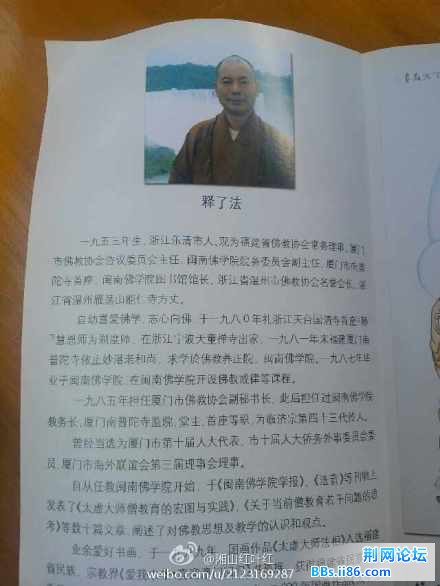 释了法
一九五三年生，浙江乐清市人。现为福建省佛教协会常务理事，厦门
市佛教协会咨议委员会主任，闽南佛学院院务委员会副主任，厦门市南普
陀寺首座，闽南佛学院图书馆馆长，浙江省温州市佛教协会名誉会长，浙
江省温州雁荡山能仁寺方丈。
自幼喜爱佛学，志心向佛，于一九八〇年礼浙江天台国清寺首座
慧恩师为剃度师，在浙江宁波天童禅寺出家，一九八一年来福建厦门南
普陀寺依止妙湛老和尚，求学于佛教养正院、闽南佛学院。一九八七年毕
业于闽南佛学院，在闽南佛学院开设佛教戒律等课程。
一九八五年担任厦门市佛教协会副秘书长，此后担任过闽南佛学院
教务长，厦门南普陀寺监院、堂主、首座等职，为临济宗第四十三代传人。
曾经当选为厦门市第十届人大代表，市十届人大侨务外事委员会委
员，厦门市海外联谊会第三届理事会理事。
自从任教闽南佛学院开始，于《闽南佛学院学报》、《法音》等刊物上
发表了《太虚大师僧教育的宏图与实践》、《关于当前僧教育若干问题的思
考》等数十篇文章，阐述了对佛教思想及教学的认识和观点。
业余爱好书画，于一九九九年，国画作品《太虚大师法相》入选福建
省民族、宗教界《爱我
@湘山红叶红
weibo.com/u/2123169287
荆网论坛
BBS.ii86.com